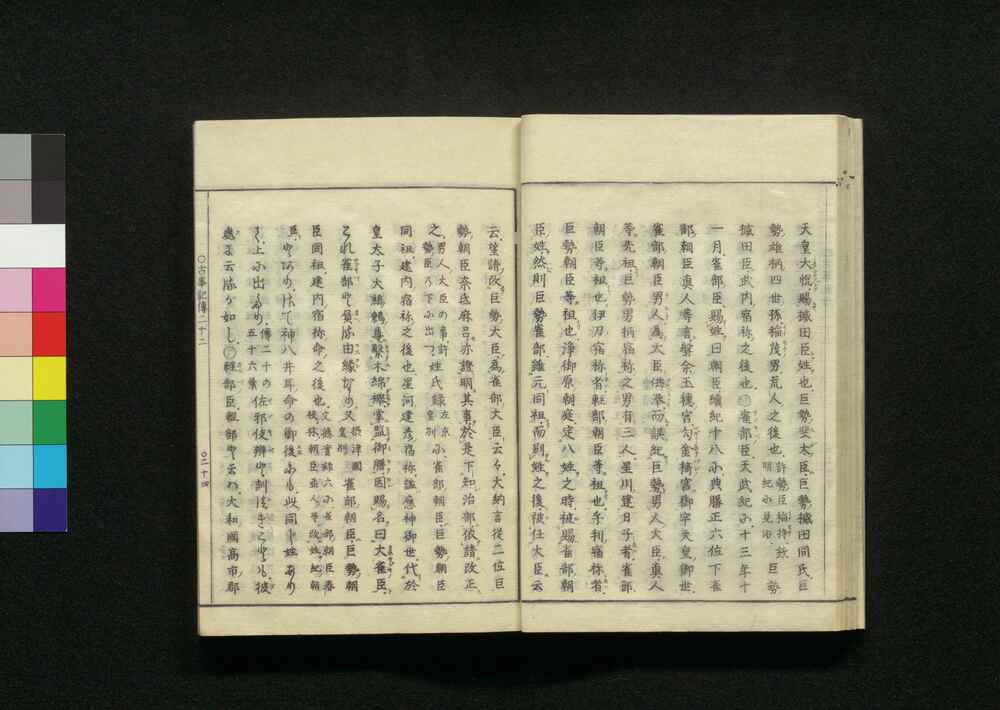 天皇大悅賜槭田臣姓也巨勢斐太臣巨勢槭田同氏巨
勢雄柄四世孫稲茂男荒人之後也
許勢臣稲持欽
明紀に見ゆ
巨勢
槭田臣武内宿祢之後也雀部臣天武紀に十三年十
一月雀部臣賜姓曰朝臣續紀十八に典膳正六位下雀
部朝臣眞人等言磐余玉穗宮勾金椅宮御宇天皇御世
雀部朝臣男人爲大臣供奉而誤紀巨勢男人大臣眞人
等先祖巨勢男柄宿祢之男有三人星川建日子者雀部
朝臣等祖也伊刀宿祢者軽部朝臣等祖也乎利宿祢者
巨勢朝臣等祖也浄御原朝庭定八姓之時被賜雀部朝
臣姓然則巨勢雀部雖元同祖而別姓之後被任大臣云
云望請改巨勢大臣爲雀部大臣云々大納言從二位巨
勢朝臣奈氐麻呂亦證明其事於是下知治部依請改正
之
男人大臣の事許
勢臣の下に出つ
姓氏錄
左京
皇別
に雀部朝臣巨勢朝臣
同祖建内宿祢之後也星河建彦宿祢謚應神御世代於
皇太子大鷦鷯尊繫木綿襷掌監御膳因賜名曰大雀臣
これ雀部や負る由縁なり又
攝津國
皇別
雀部朝臣巨勢朝
臣同祖建内宿祢命之後也
臣やあり偖て神八井耳命の御後にも此同し姓あり
そは上に出たり
傳二十の
五十六葉
處に云るが如し軽部臣軽部や云は大和國高市郡
○古事記傳二十二
○二十四